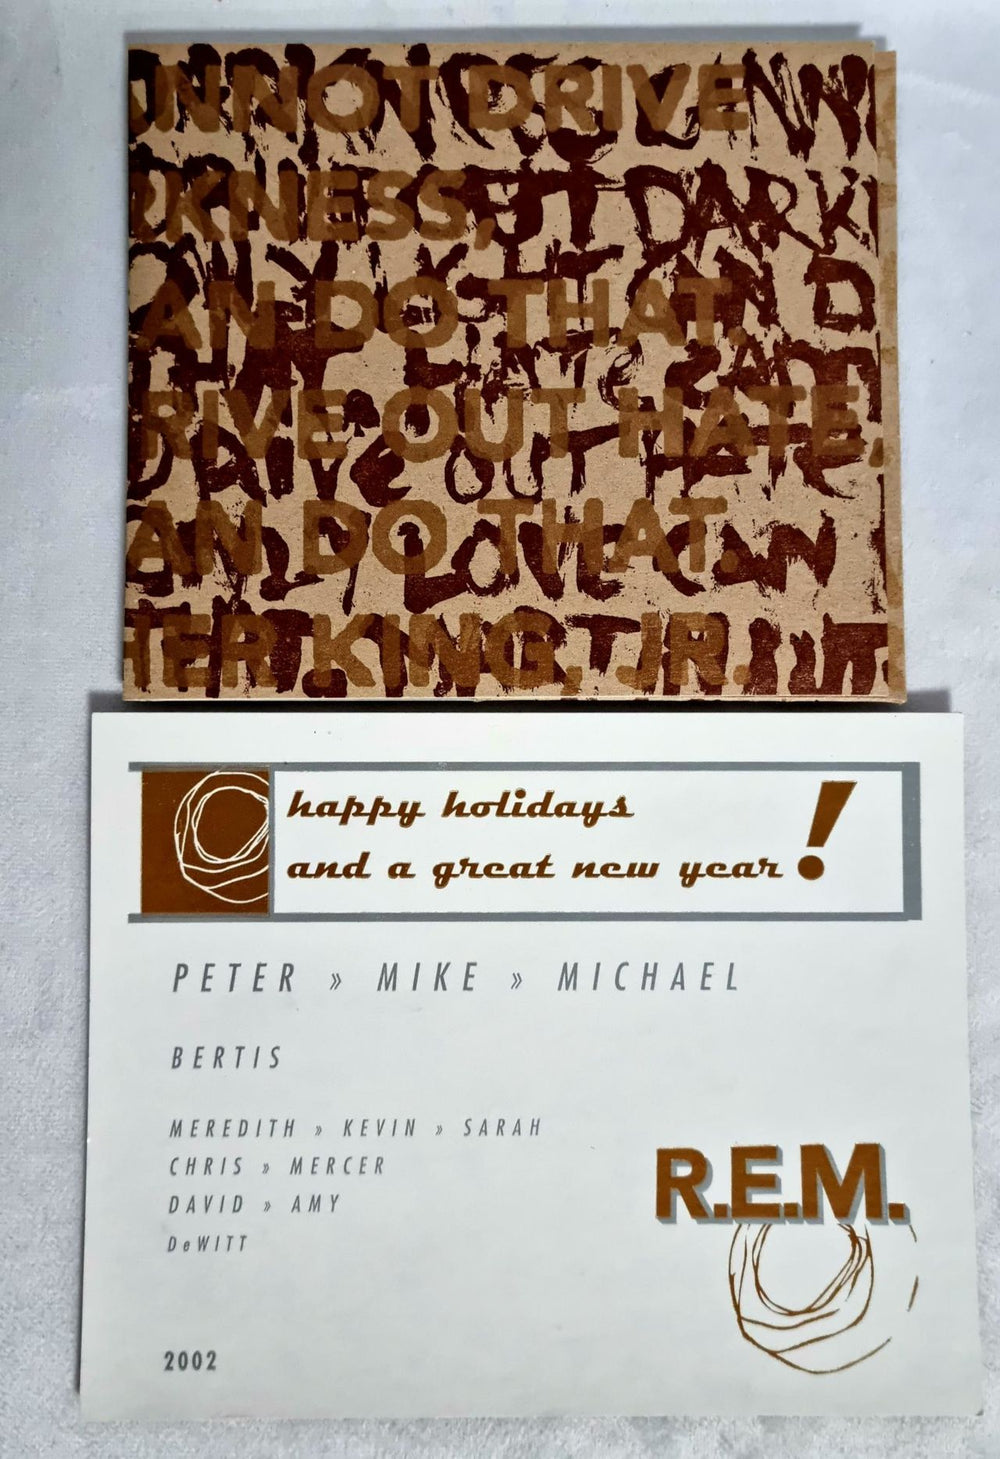 NNOT DRIVE
RKNESS,
AN DO THAT.
RIVE OUT HATE,
DRIVE OUT HATE
AN DO THAT.
ONLY LOVE CAN
HER KING, JR.
happy holidays
and a great new year!
PETER » MIKE » MICHAEL
BERTIS
MEREDITH » KEVIN » SARAH
CHRIS » MERCER
DAVID » AMY
DeWITT
R.E.M.
2002